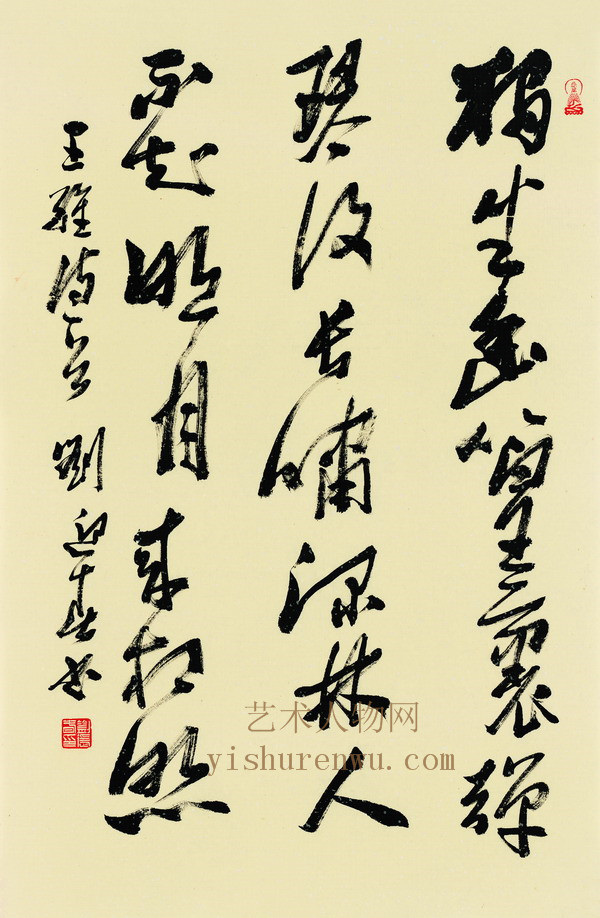 獨坐幽篁裏彈
琴復長嘯深林人
不知明月来相照
王維詩一首 劉迎春书
艺术人物网
yishurenwu.com